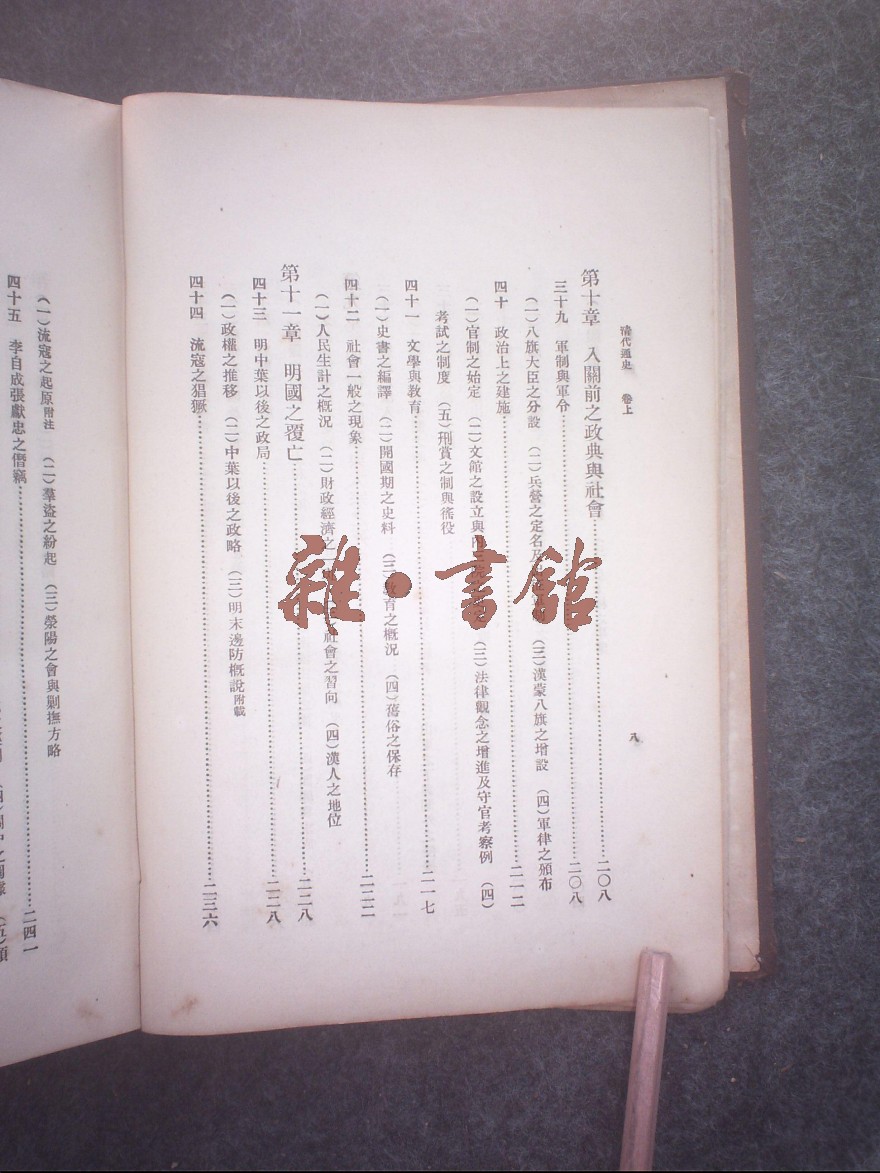 清代通史　卷上
八
第十章　入關前之政典與社會……二〇八
三十九　軍制與軍令……二〇八
（一）八旗大臣之分設　（二）兵營之定名及　（三）漢蒙八旗之增設　（四）軍律之頒布
四十　政治上之建施……二一二
（一）官制之始定　（二）文館之設立與　（三）法律觀念之增進及守官考察例　（四）
考試之制度　（五）刑賞之制與徭役
四十一　文學與教育……二一七
（一）史書之編譯　（二）開國期之史料　（三）教育之概況　（四）舊俗之保存
四十二　社會一般之現象……二二二
（一）人民生計之概況　（二）財政經濟之　社會之習向　（四）漢人之地位
第十一章　明國之覆亡……二二八
四十三　明中葉以後之政局……二二八
（一）政權之推移　（二）中葉以後之政略　（三）明末邊防概說附載
四十四　流寇之猖獗……二三六
（一）流寇之起原附注　（二）羣盜之紛起　（三）滎陽之會與剿撫方略
四十五　李自成張獻忠之僭竊……二四一
雜·書館